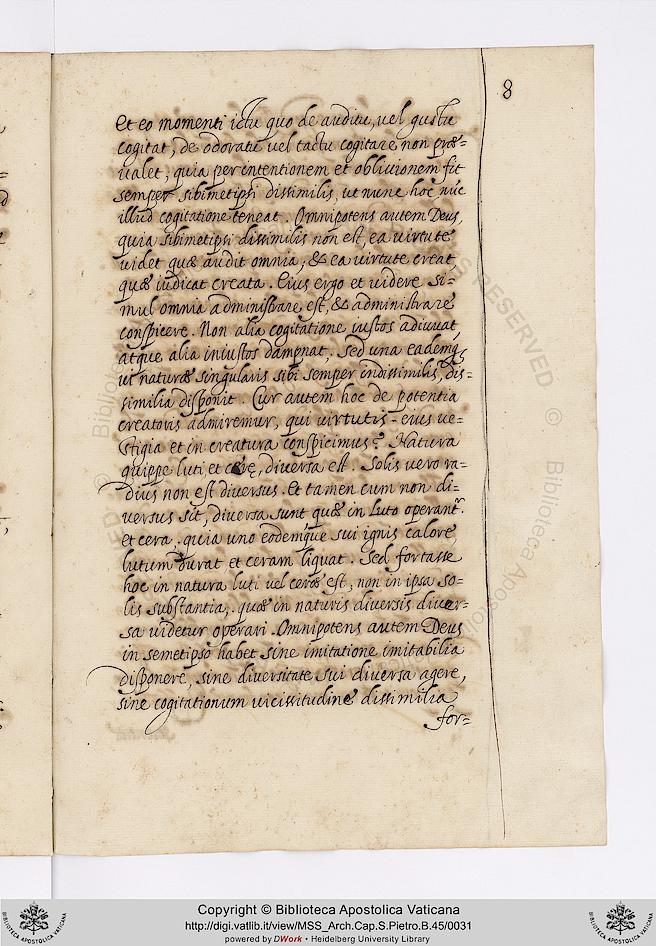 8
Et eo momenti ictu quo de auditu, vel gustu
cogitat, de odoratu vel tactu cogitare non præ=
ualet, quia per intentionem et obliuionem fit
semper sibimetipsi dissimilis, ut nunc hoc, nũc
illud cogitatione teneat. Omnipotens autem Deus,
quia sibimetipsi dissimilis non est, ea virtute
videt quæ audit omnia, & ea virtute creat
quæ iudicat creata. Eius ergo et videre si=
mul omnia administrare est, & administrare
conspicere. Non alia cogitatione iustos adiuuat,
atque alia iniustos dampnat, sed una eademq;
ut naturæ singularis sibi semper indissimilis, dis=
similia disponit. Cur autem hoc de potentia
creatoris admiremur, qui virtutis eius ve=
stigia et in creatura conspicimus? Natura
quippe luti et ceræ, diversa est. Solis vero ra=
dius non est diversus. Et tamen cum non di=
versus sit, diversa sunt quæ in luto operant.r
et cera. quia uno eodemque sui ignis calore,
lutum durat et ceram liquat. Sed fortasse
hoc in natura luti vel ceræ est, non in ipsa so=
lis substantia, quæ in naturis diversis diver=
sa videtur operari. Omnipotens autem Deus
in semetipso habet sine imitatione imitabilia
disponere, sine diversitate sui diversa agere,
sine cogitationum vicissitudine dissimilia
for=
Copyright © Biblioteca Apostolica Vaticana
http://digi.vatlib.it/view/MSS_Arch.Cap.S.Pietro.B.45/0031
powered by DWork • Heidelberg University Library